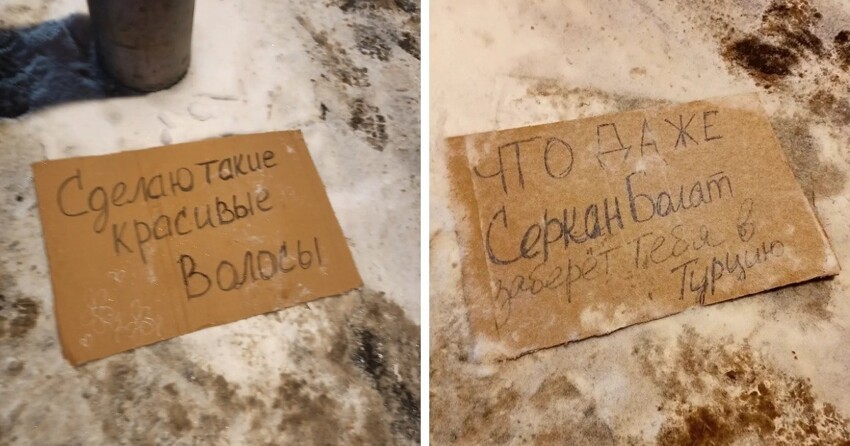 Сделаю такие
красивые
Волосы
ЧТО ДАЖЕ
Серкан Болат
заберёт тебя в
Турцию